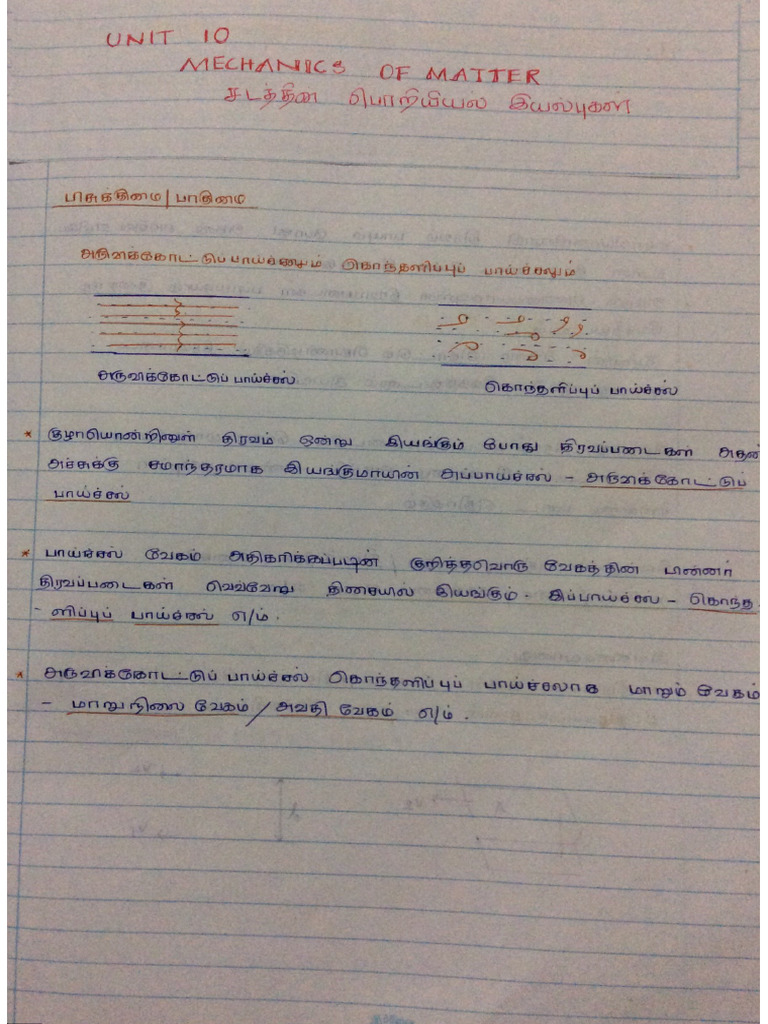 UNIT 10
MECHANICS OF MATTER
சடத்தின் பொறியியல் இயல்புகள்
பிசுக்குமை / பாகுமை
அருவிக்கோட்டுப் பாய்ச்சலும் கொந்தளிப்புப் பாய்ச்சலும்
அருவிக்கோட்டுப் பாய்ச்சல்
கொந்தளிப்புப் பாய்ச்சல்
* குழாயொன்றினுள் திரவம் ஒன்று இயங்கும் போது திரவப்படைகள் அதன்
அச்சுக்கு சமாந்தரமாக இயங்குமாயின் அப்பாய்ச்சல் – அருவிக்கோட்டுப்
பாய்ச்சல்
* பாய்ச்சல் வேகம் அதிகரிக்கப்படின் குறித்தவொரு வேகத்தின் பின்னர்
திரவப்படைகள் வெவ்வேறு திசையில் இயங்கும். இப்பாய்ச்சல் – கொந்த-
-ளிப்புப் பாய்ச்சல் எ/ம்.
* அருவிக்கோட்டுப் பாய்ச்சல் கொந்தளிப்புப் பாய்ச்சலாக மாறும் வேகம்
– மாறுநிலை வேகம் / அவதி வேகம் எ/ம்.